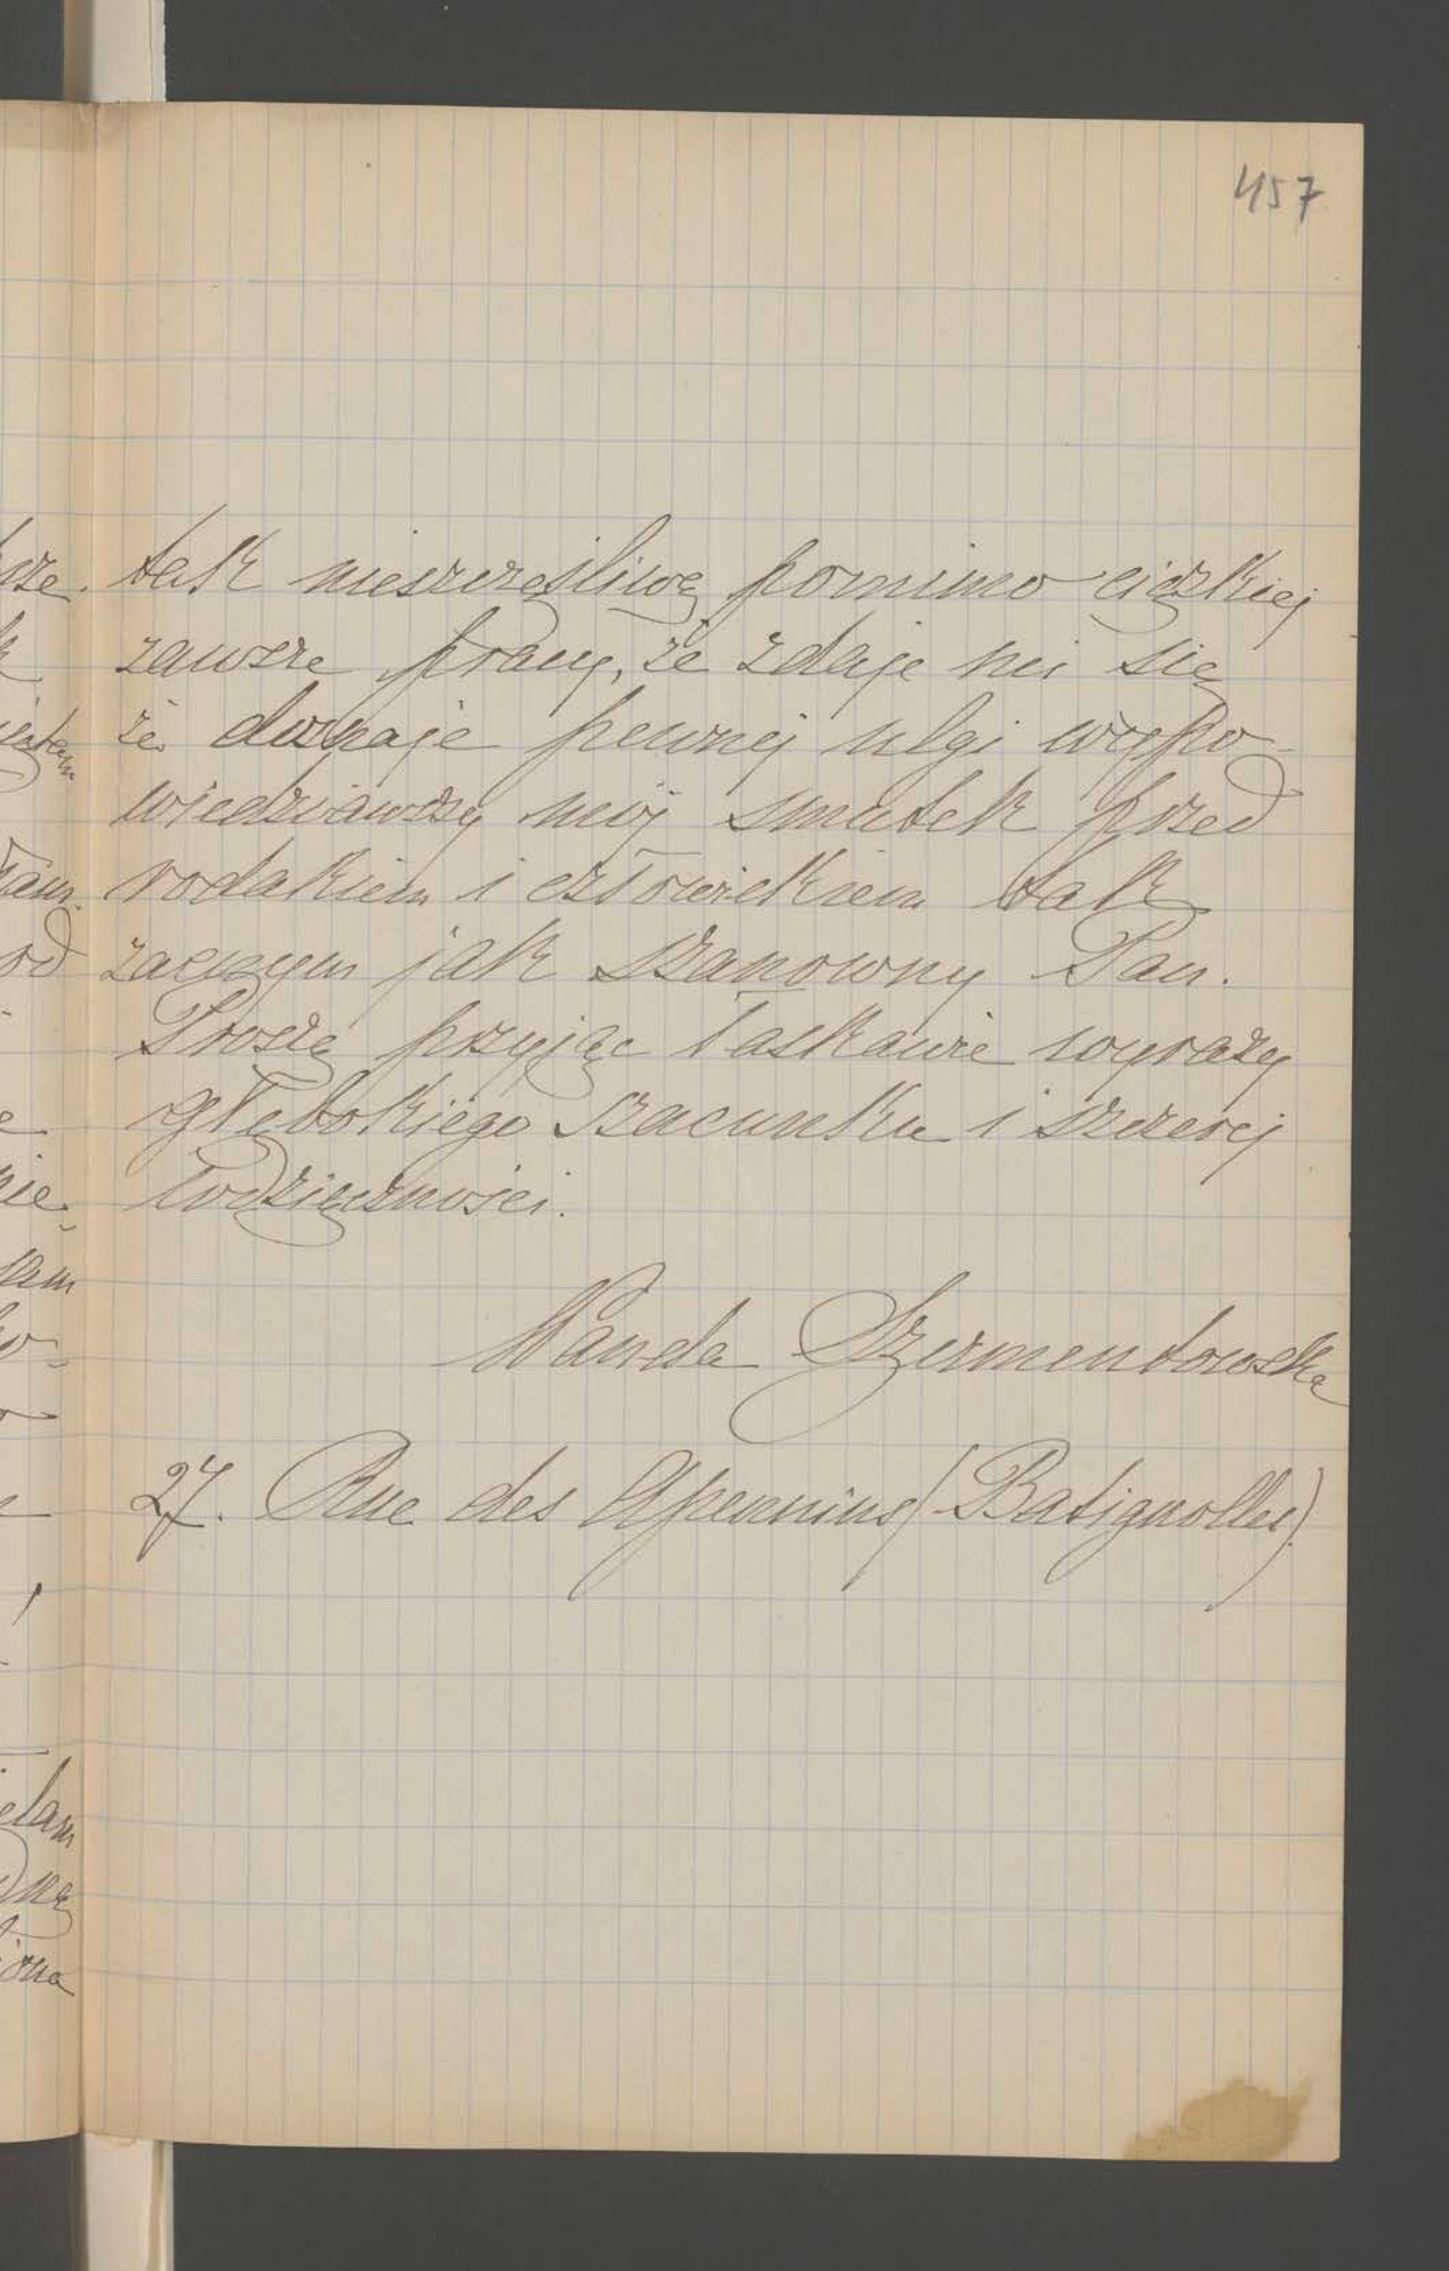 457
tak nieszczęśliwą pomimo ciężkiej
zawsze pracy, że zdaje mi się
że doznaję pewnej ulgi wypo-
wiedziawszy mój smutek przed
rodakiem i człowiekiem tak
zacnym jak Szanowny Pan.
Proszę przyjąć łaskawie wyrazy
głębokiego szacunku i szczerej
wdzięczności.
Wanda Szermentowska
27. Rue des Apennins (Batignolles).